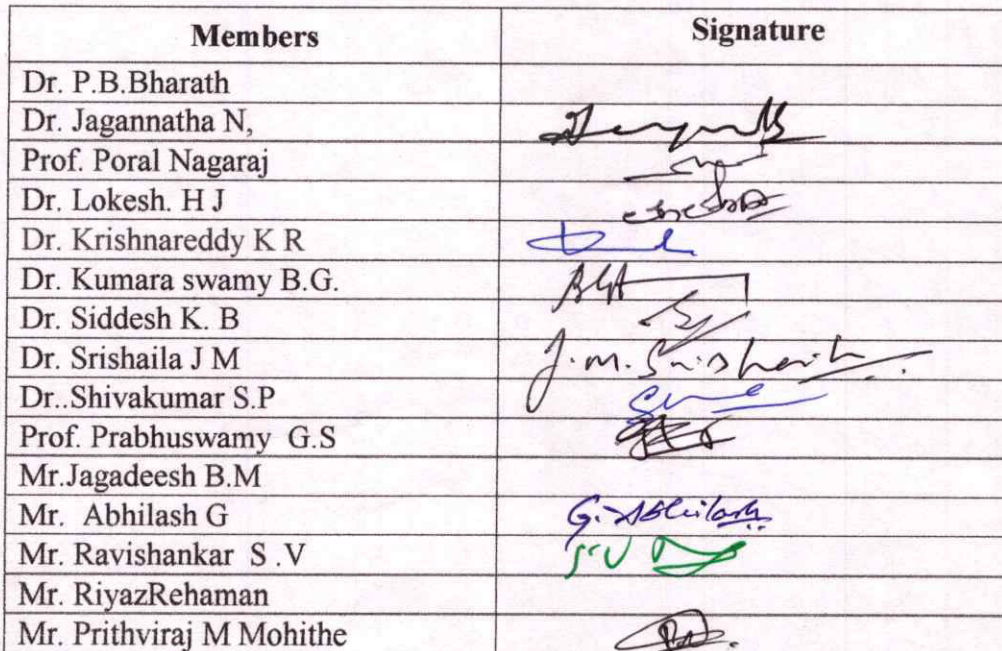 Members Signature
Dr. P.B.Bharath
Dr. Jagannatha N,
Prof. Poral Nagaraj
Dr. Lokesh. H J
Dr. Krishnareddy K R
Dr. Kumara swamy B.G.
Dr. Siddesh K. B
Dr. Srishaila J M J.M. Srishaila
Dr..Shivakumar S.P
Prof. Prabhuswamy G.S
Mr.Jagadeesh B.M
Mr. Abhilash G G. Abhilash
Mr. Ravishankar S .V
Mr. RiyazRehaman
Mr. Prithviraj M Mohithe